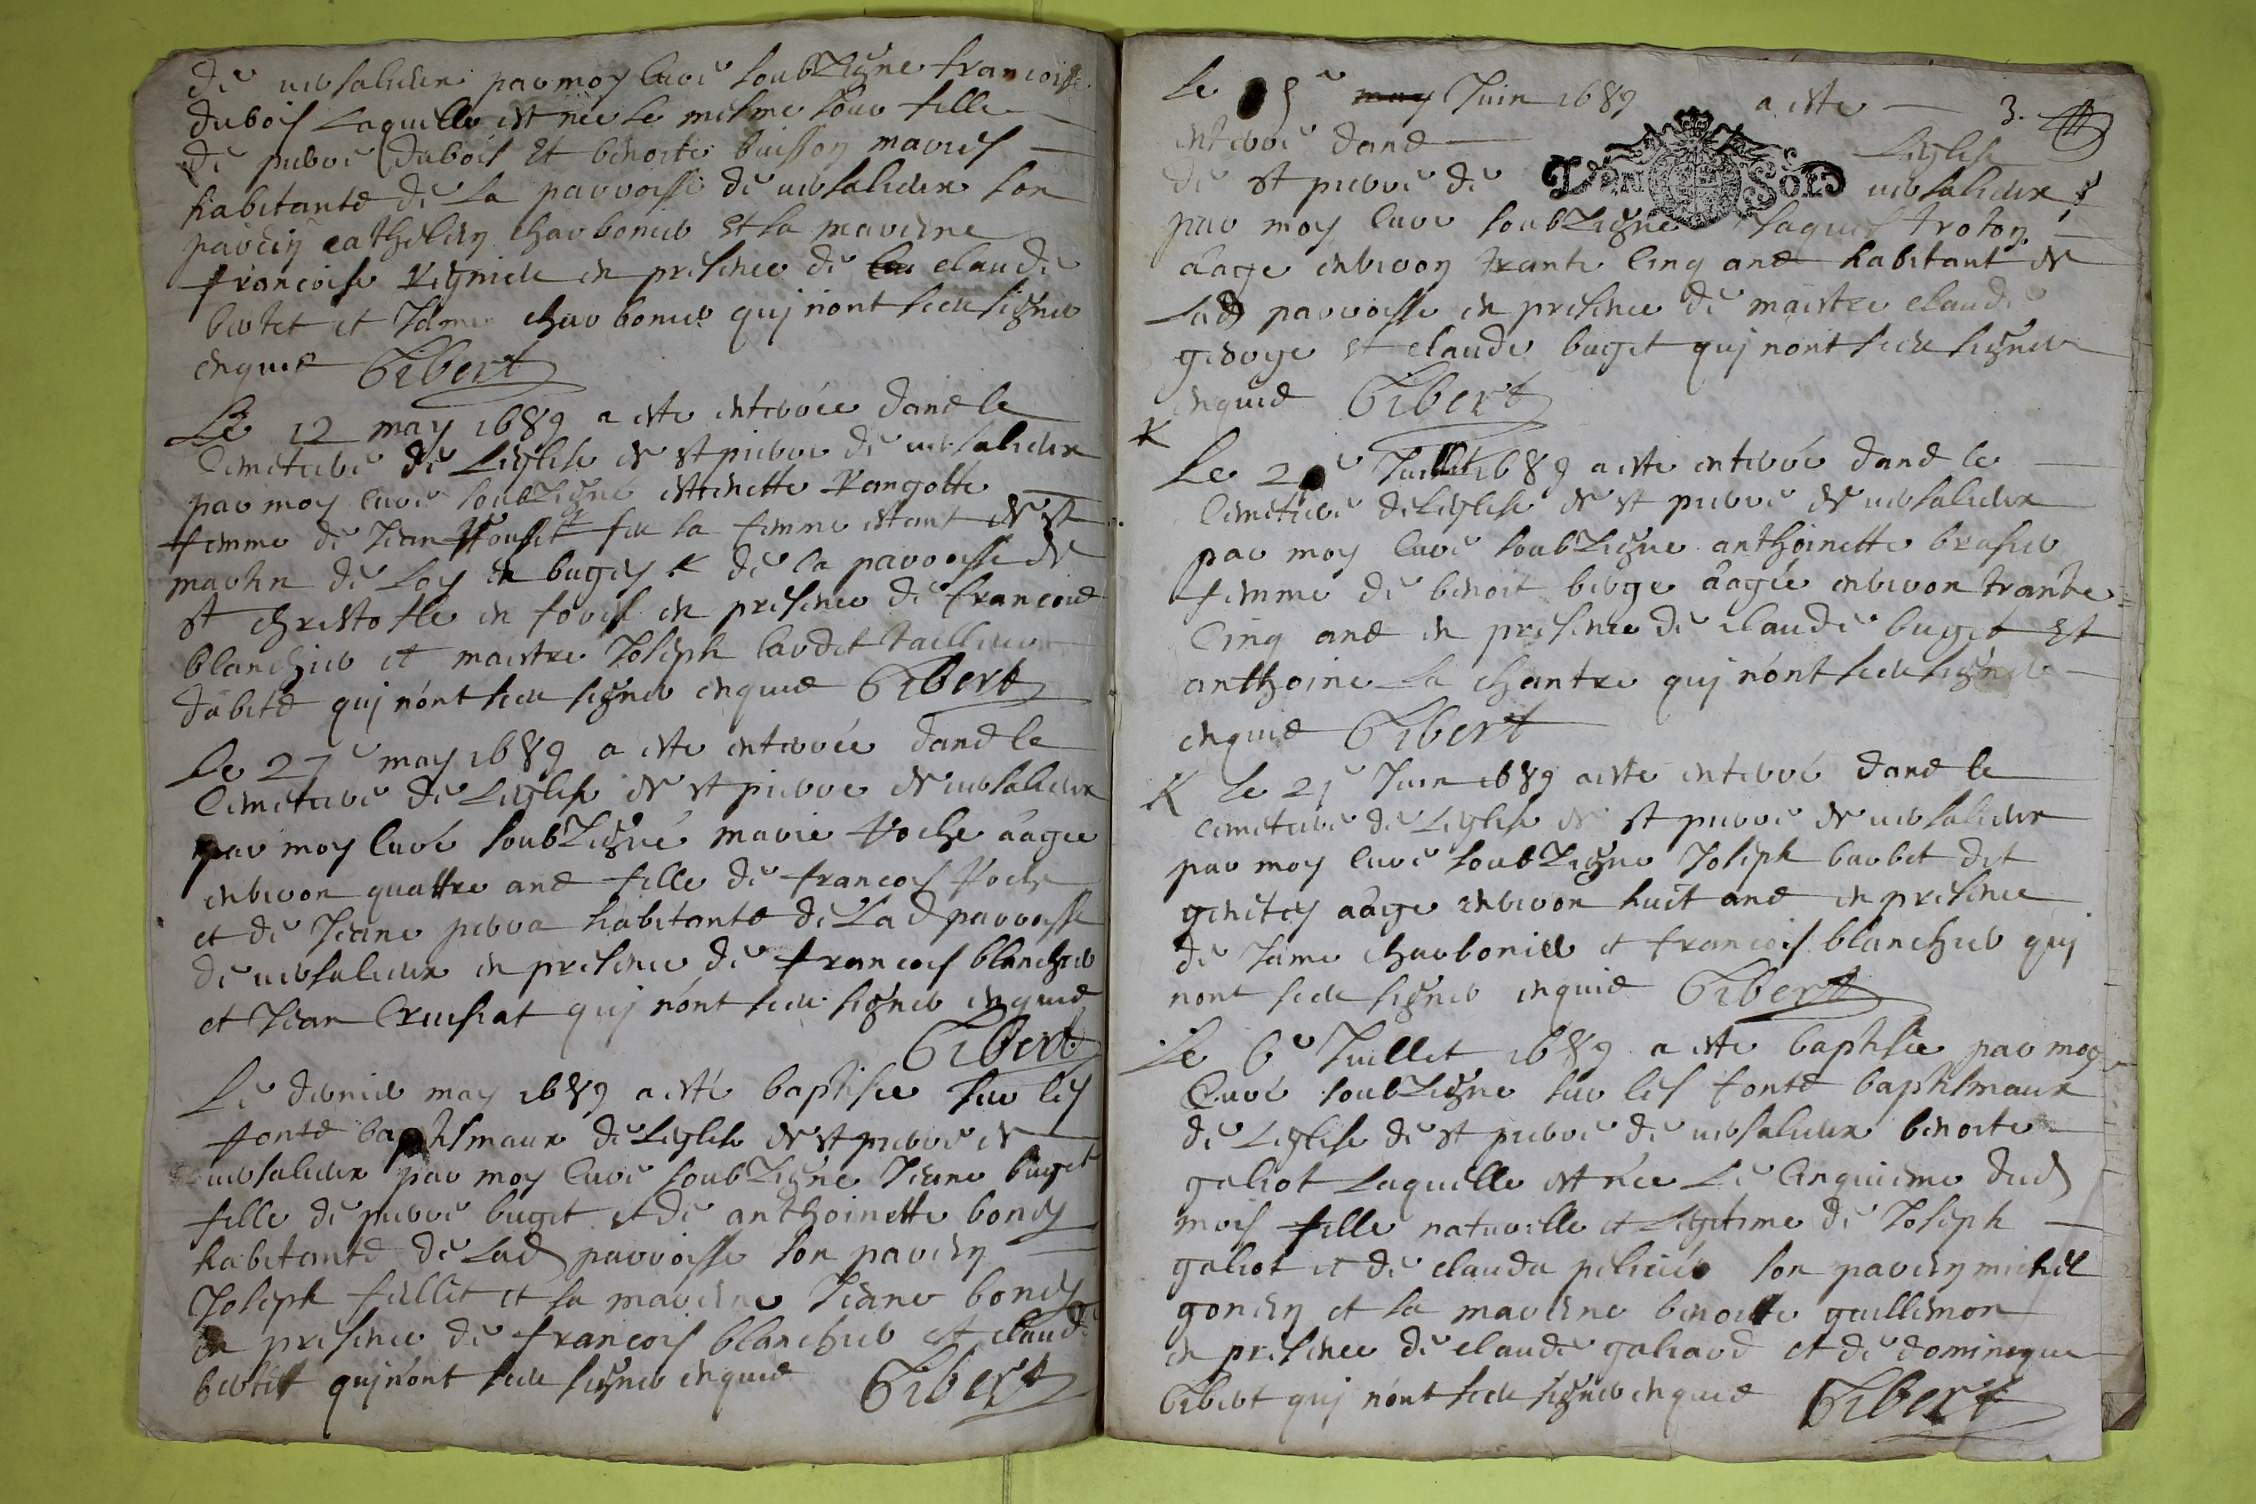 de versalieux par moy Curé soubZigne francoise
dubois Laquelle est née le mesme Jour fille
de pierre dubois Et benoite buisson mariés
habitants de La parroisse de versalieux son
parein cathelein charbonier Et la mareine
francoise Regnier en presence de claude
bertet et charbonier quj nont sceu signer
enquis Gibert
Le 12 may 1689 a esté enterrée dans le
Cimetiere de Leglise de st pierre de versalieux
par moy Curé soubZigné estienette Rangotte
femme de Jean feu la femme estant de st
martin de en bugey de la parroisse de
st christofle en forest en presence de francois
blanchier et maistre Joseph tailleur
d'abits quj n'ont sceu signer enquis Gibert
Le 27e may 1689 a esté enterrée dans le
Cimetiere de Leglise de st pierre de versalieux
par moy Curé soubZigné marie Roche aagée
environ quattre ans fille de francois Roche
et de Jeane perra habitants de Lad parroisse
de versalieux en presence de francois blanchier
et Jean Crusiat quj n'ont sceu signer enquis
Gibert
Le dernier may 1689 a esté baptisée sur les
fonts baptismaux de Leglise de st pierre de
versalieux par moy Curé soubZigné Jeane buget
fille de pierre buget et de anthoinette bondy
habitants de Lad parroisse son parein
Joseph fillet et sa mareine Jeane bondy
en presence de francois blanchier et claude
bertet quj n'ont sceu signer enquis Gibert
Le Juin 1689 a esté 3.
enterré dans Leglise
de st pierre de versalieux
par moy Curé soubZigné Jaques troton
aagé environ trante Cinq ans habitant de
Lad parroisse en presence de maistre claude
george et claude buget quj n'ont sceu signer
enquis Gibert
Le Juillet 1689 a esté enterrée dans le
Cimetiere de Leglise de st pierre de versalieux
par moy Curé soubZigné anthoinette brasier
femme de benoit berge aagée environ trante
Cinq ans en presence de claude buget Et
anthoine La chantre quj n'ont sceu signer
enquis Gibert
Le 21e Juin 1689 a esté enterré dans le
Cimetiere de Leglise de st pierre de versalieux
par moy Curé soubZigné Joseph barbet dit
aagé environ huit ans en presence
de Jame charbonier et francois blanchier quj
nont sceu signer enquis Gibert
Le 6e Juillet 1689 a esté baptisée par moy
Curé soubZigné sur les fonts baptismaux
de Leglise de st pierre de versalieux benoite
galiot Laquelle est née Le Cinquieme dud
mois fille naturelle et Legitime de Joseph
galiot et de clauda son parein michel
gondin et la mareine benoite guillemon
en presence de claude galiard et de dominique
Gibert quj n'ont sceu signer enquis Gibert